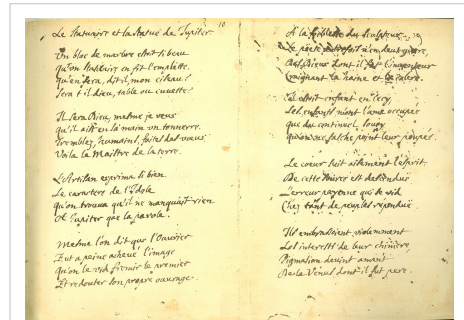 Le Statuaire et la Statue de Jupiter
10
Un bloc de marbre estoit si beau
qu'un Statuaire en fit l'emplette.
qu'en fera, dit il, mon ciseau?
Sera t il dieu, table ou cuvette?
Il sera Dieu, mesme je veux
Qu'il ait en sa main un tonnerre.
Tremblez, humains, faites des vœux
Voila le Maistre de la terre.
L'Artisan exprima si bien
Le caractere de l'Idole
Qu'on trouva qu'il ne manquoit rien
A Jupiter que la parole.
Mesme l'on dit que l'Ouvrier
Eut a peine achevé l'image
Qu'on le vid fremir le premier
Et redouter son propre ouvrage.
A la foiblesse du Sculpteur
Le poëte autrefois n'en deut guere,
Des Dieux dont il fut l'inventeur
Craignant la haine et la colere.
Il estoit enfant en cecy,
Les enfants n'ont l'ame occupée
Que du continuel soucy
Qu'on ne fasche point leur poupée.
Le cœur suit aisément l'esprit.
De cette source est descendüe
L'erreur payenne qui se vid
Chez tant de peuples repandüe
Ils embrassoient violemment
Les interests de leur chimère,
Pigmalion devint amant
De la Venus dont il fut pere.